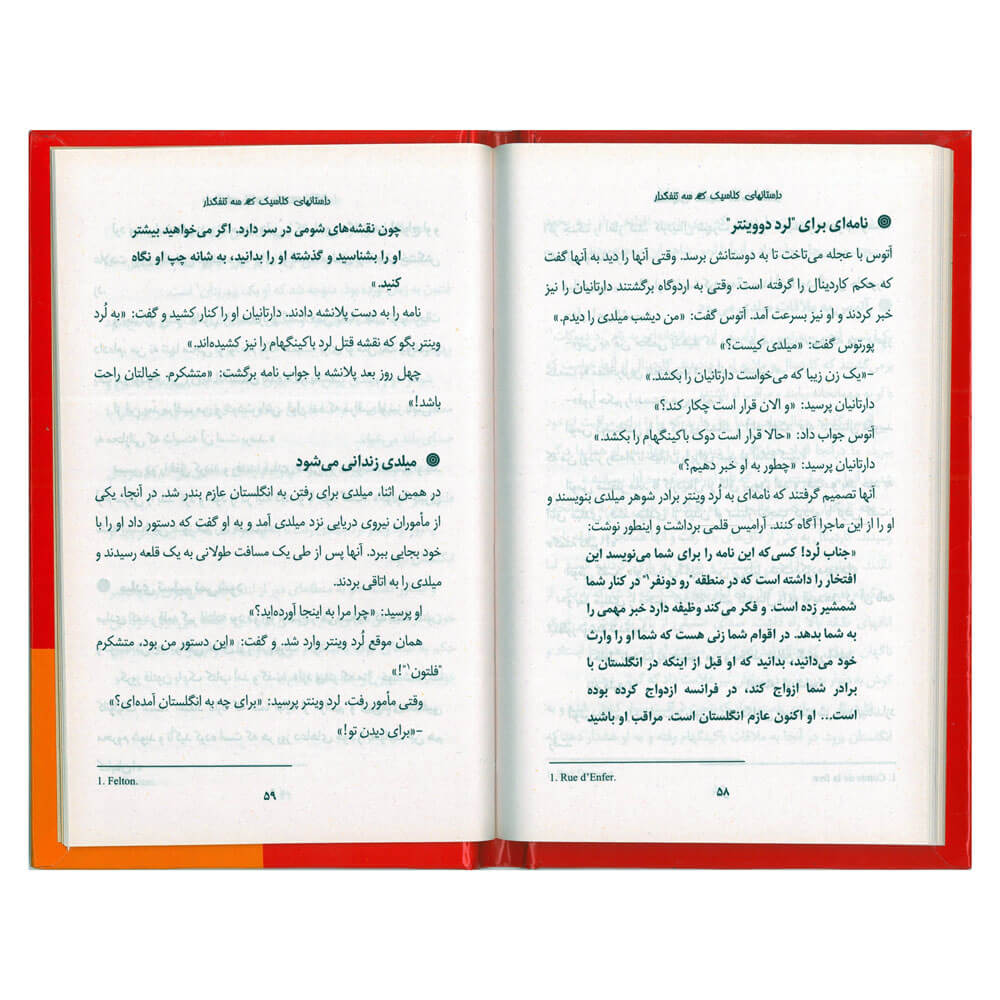 داستانهای کلاسیک سه تفنگدار
نامه‌ای برای "لرد دووینتر"
آتوس با عجله می‌تاخت تا به دوستانش برسد. وقتی آنها را دید به آنها گفت
که حکم کاردینال را گرفته است. وقتی به اردوگاه برگشتند دارتانیان را نیز
خبر کردند و او نیز بسرعت آمد. آتوس گفت: «من دیشب میلدی را دیدم.»
پورتوس گفت: «میلدی کیست؟»
-«یک زن زیبا که می‌خواست دارتانیان را بکشد.»
دارتانیان پرسید: «و الان قرار است چکار کند؟»
آتوس جواب داد: «حالا قرار است دوک باکینگهام را بکشد.»
دارتانیان پرسید: «چطور به او خبر دهیم؟»
آنها تصمیم گرفتند که نامه‌ای به لُرد وینتر برادر شوهر میلدی بنویسند و
او را از این ماجرا آگاه کنند. آرامیس قلمی برداشت و اینطور نوشت:
«جناب لُرد! کسی‌که این نامه را برای شما می‌نویسد این
افتخار را داشته است که در منطقه "رو دونفر۱" در کنار شما
شمشیر زده است. و فکر می‌کند وظیفه دارد خبر مهمی را
به شما بدهد. در اقوام شما زنی هست که شما او را وارث
خود می‌دانید، بدانید که او قبل از اینکه در انگلستان با
برادر شما ازواج کند، در فرانسه ازدواج کرده بوده
است... او اکنون عازم انگلستان است. مراقب او باشید
1. Rue d'Enfer.
۵۸
داستانهای کلاسیک سه تفنگدار
چون نقشه‌های شومی در سر دارد. اگر می‌خواهید بیشتر
او را بشناسید و گذشته او را بدانید، به شانه چپ او نگاه
کنید.»
نامه را به دست پلانشه دادند. دارتانیان او را کنار کشید و گفت: «به لُرد
وینتر بگو که نقشه قتل لرد باکینگهام را نیز کشیده‌اند.»
چهل روز بعد پلانشه با جواب نامه برگشت: «متشکرم. خیالتان راحت
باشد!»
میلدی زندانی می‌شود
در همین اثنا، میلدی برای رفتن به انگلستان عازم بندر شد. در آنجا، یکی
از مأموران نیروی دریایی نزد میلدی آمد و به او گفت که دستور داد او را با
خود بجایی ببرد. آنها پس از طی یک مسافت طولانی به یک قلعه رسیدند و
میلدی را به اتاقی بردند.
او پرسید: «چرا مرا به اینجا آورده‌اید؟»
همان موقع لُرد وینتر وارد شد. و گفت: «این دستور من بود. متشکرم
"فلتون۱"!»
وقتی مأمور رفت، لرد وینتر پرسید: «برای چه به انگلستان آمده‌ای؟»
-«برای دیدن تو!»
1. Felton.
۵۹